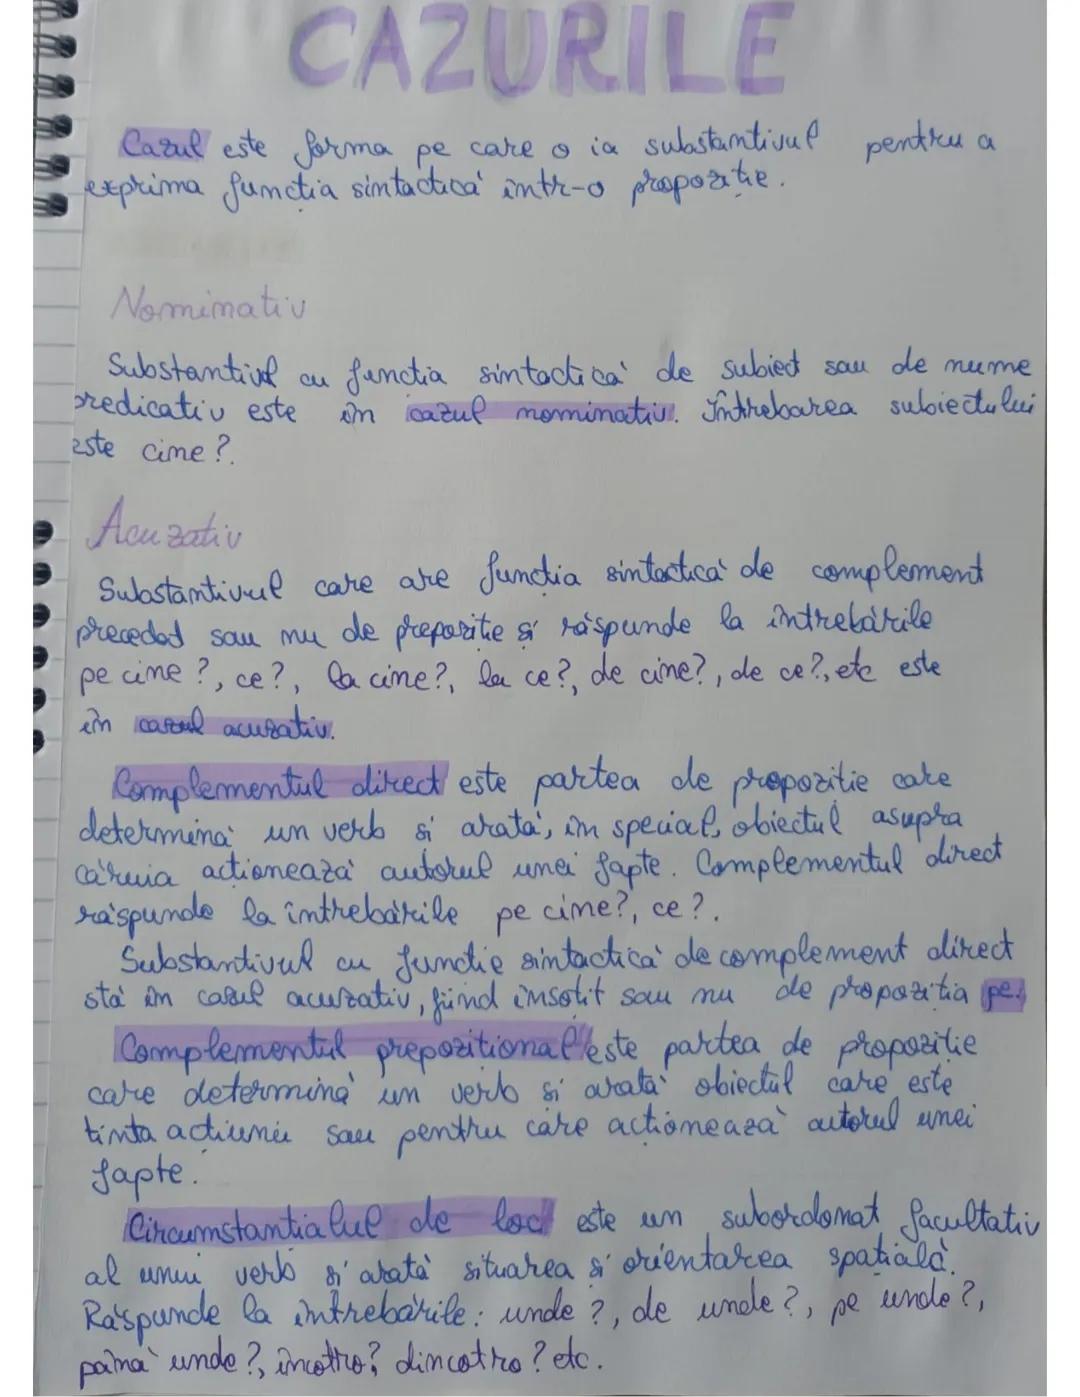 CAZURILE
Cazul este forma pe care o ia substantivul pentru a
exprima funcția sintactică într-o propoziție.
Nominativ
Substantivul cu funcția sintactică de subiect sau de nume
predicativ este în cazul nominativ. Întrebarea subiectului
este cine?.
Acuzativ
Substantivul care are funcția sintactică de complement
precedat sau nu de prepoziție și răspunde la întrebările
pe cine?, ce?, la cine?, la ce?, de cine?, de ce?, etc este
în cazul acuzativ.
Complementul direct este partea de propoziție care
determină un verb și arată, în special, obiectul asupra
căruia acționează autorul unei fapte. Complementul direct
răspunde la întrebările pe cine?, ce?.
Substantivul cu funcție sintactică de complement direct
stă în cazul acuzativ, fiind însoțit sau nu de propoziția pe.
Complementul prepozițional este partea de propoziție
care determină un verb și arată obiectul care este
ținta acțiunii sau pentru care acționează autorul unei
fapte.
Circumstanțialul de loc este un subordonat facultativ
al unui verb și arată situarea și orientarea spațială.
Răspunde la întrebările: unde?, de unde?, pe unde?,
până unde?, încotro? dincotro? etc.